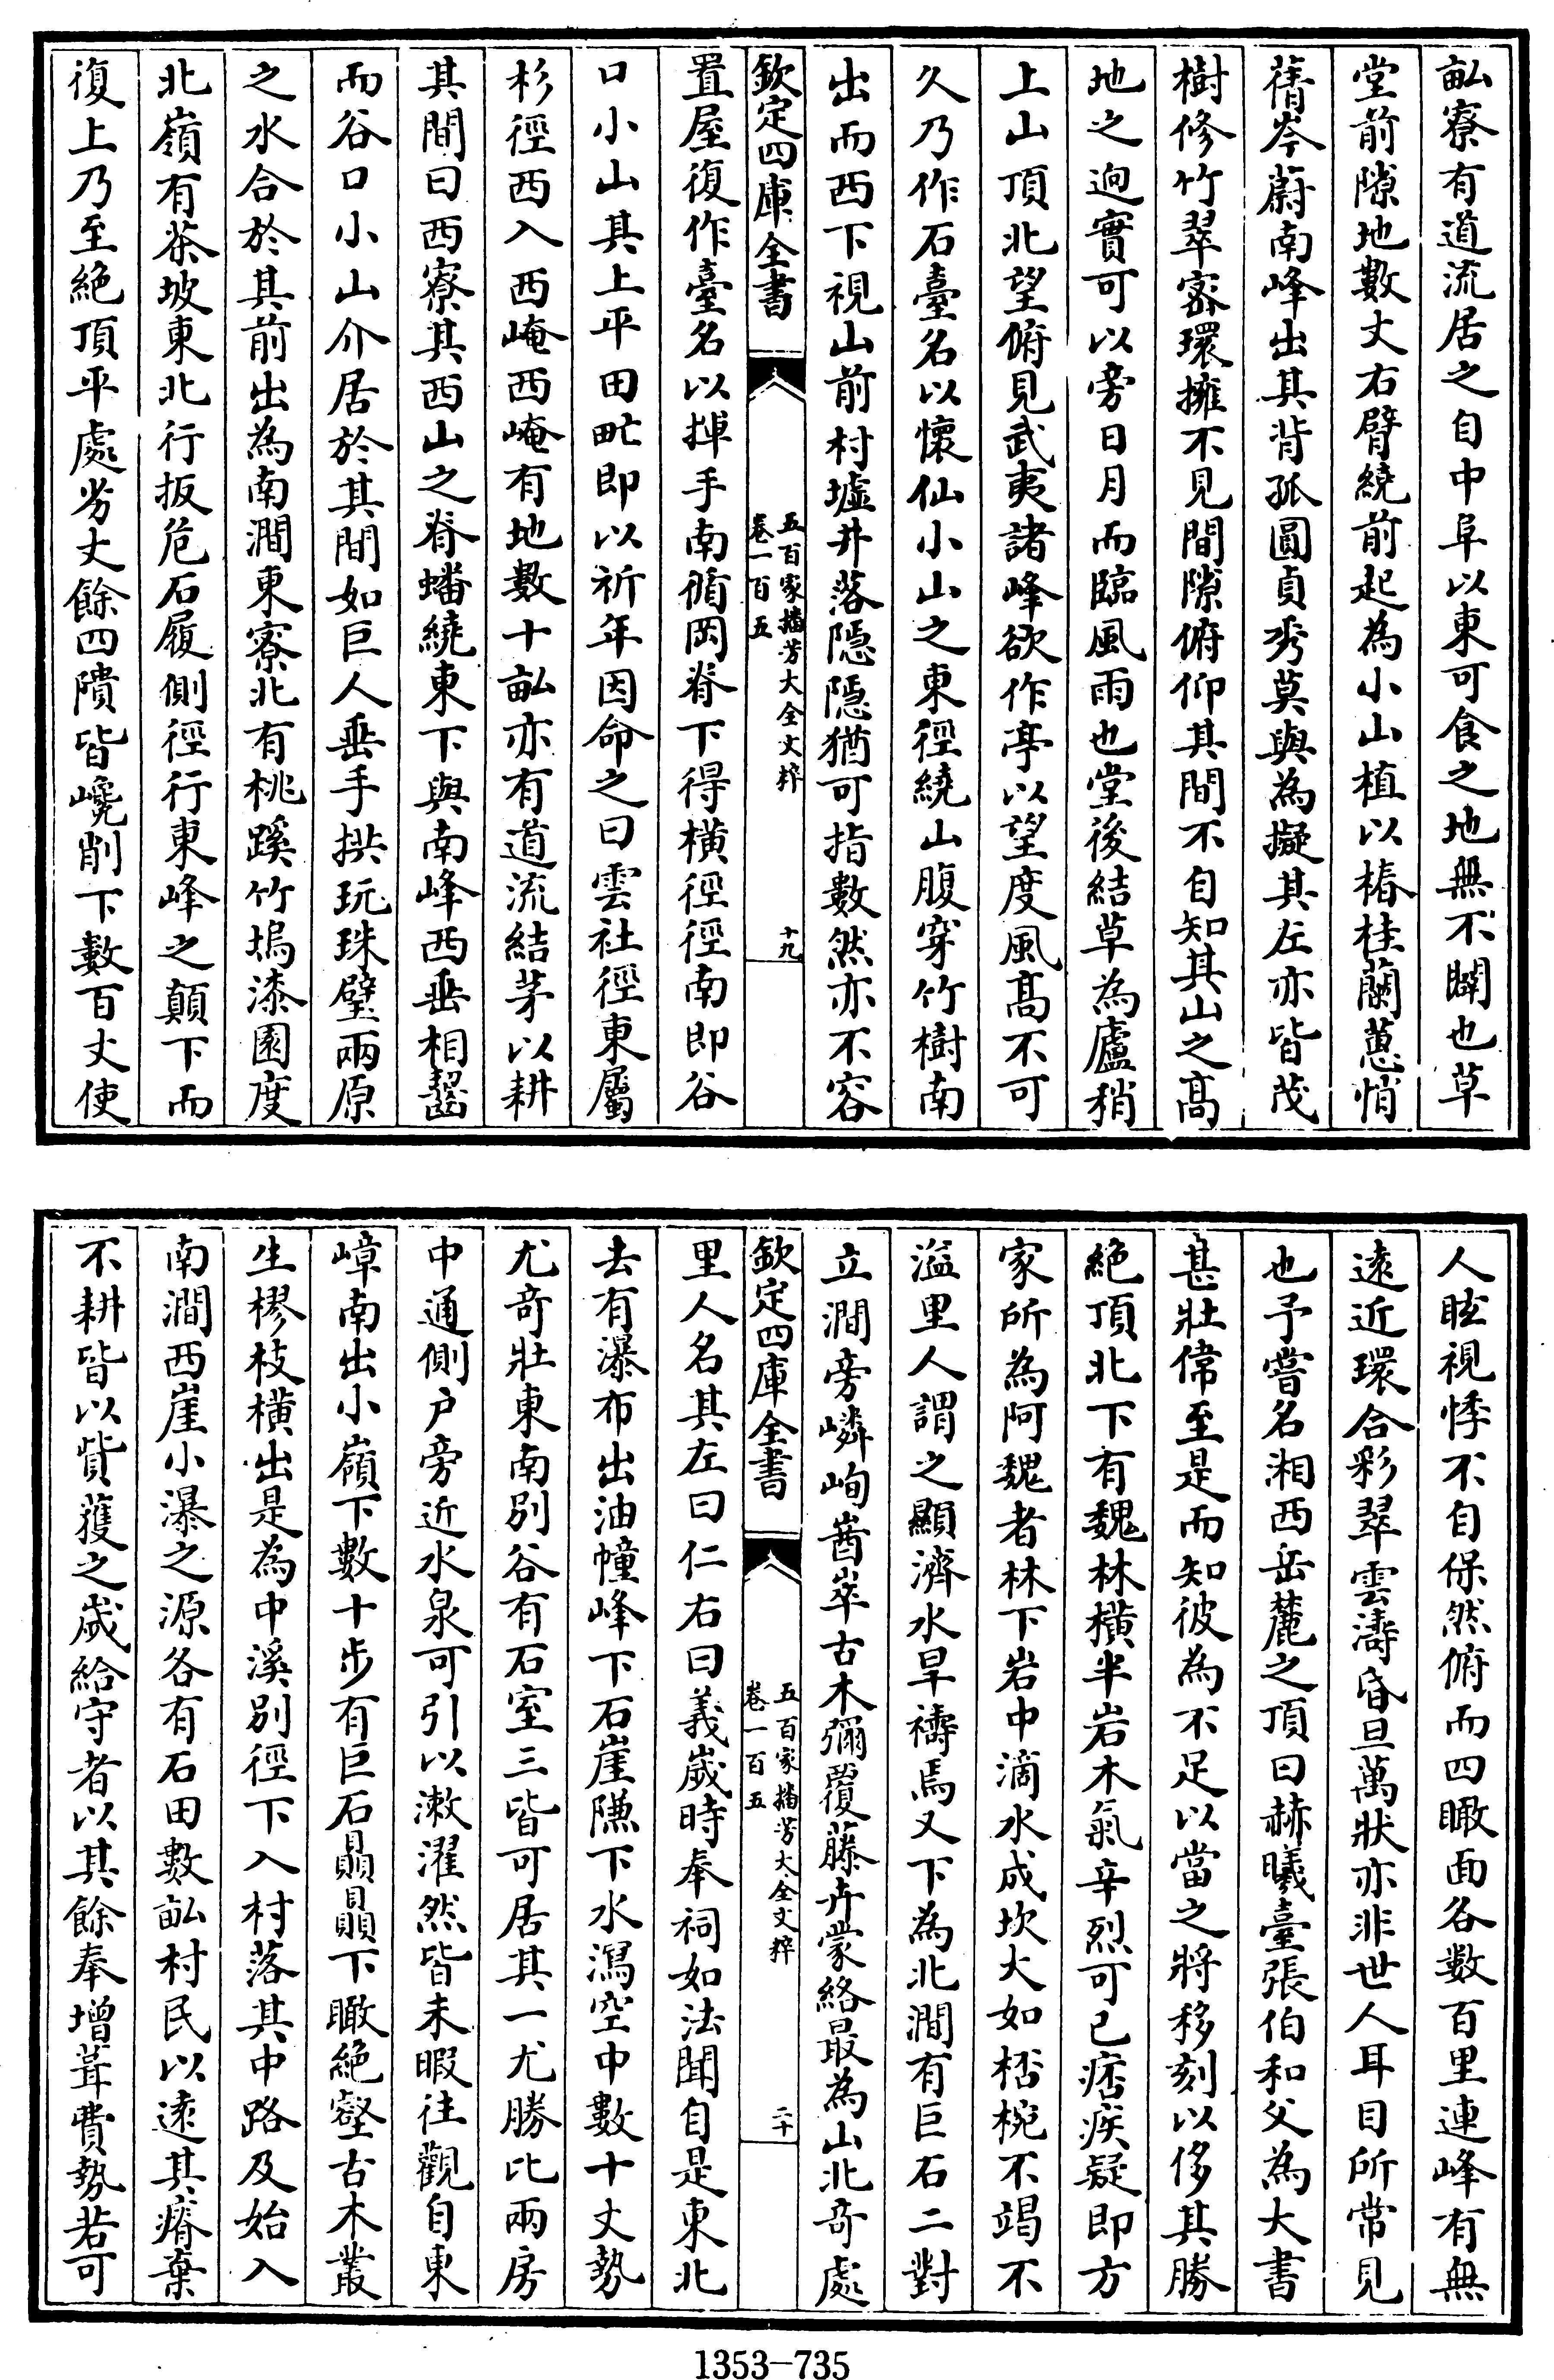 畆寮有道流居之自中阜以東可食之地無不闢也草
堂前隙地數丈右臂繞前起為小山植以椿桂蘭蕙悄
蒨岑蔚南峰出其背孤圓貞秀莫與為擬其左亦皆茂
樹修竹翠宻環擁不見間隙俯仰其間不自知其山之高
地之逈實可以旁日月而臨風雨也堂後結草為廬稍
上山頂北望俯見武夷諸峰欲作亭以望度風高不可
久乃作石臺名以懷仙小山之東徑繞山腹穿竹樹南
出而西下視山前村墟井落隱隱猶可指數然亦不容
欽定四庫全書
五百家播芳大全文粹
卷一百五
十九
置屋復作臺名以掉手南循岡脊下得橫徑徑南即谷
口小山其上平田甿即以祈年因命之曰雲社徑東屬
杉徑西入西崦西崦有地數十畆亦有道流結茅以耕
其間曰西寮其西山之脊蟠繞東下與南峰西垂相齧
而谷口小山介居於其間如巨人垂手拱玩珠璧兩原
之水合於其前出為南澗東寮北有桃蹊竹塢漆園度
北嶺有茶坡東北行扳危石履側徑行東峰之顛下而
復上乃至絶頂平處劣丈餘四隤皆巉削下數百丈使
人眩視悸不自保然俯而四瞰面各數百里連峰有無
逺近環合彩翠雲濤昏旦萬狀亦非世人耳目所常見
也予嘗名湘西岳麓之頂曰赫曦臺張伯和父為大書
甚壯偉至是而知彼為不足以當之將移刻以侈其勝
絶頂北下有魏林橫半岩木氣辛烈可已痞疾疑即方
家所為阿魏者林下岩中滴水成坎大如桮椀不竭不
溢里人謂之顯濟水旱禱焉又下為北澗有巨石二對
立澗旁嶙峋崷崒古木彌覆藤卉蒙絡最為山北奇處
欽定四庫全書
五百家播芳大全文粹
卷一百五
二十
里人名其左曰仁右曰義歲時奉祠如法聞自是東北
去有瀑布出油幢峰下石崖隒下水瀉空中數十丈勢
尤奇壯東南別谷有石室三皆可居其一尤勝比兩房
中通側户旁近水泉可引以漱濯然皆未暇往觀自東
嶂南出小嶺下數十步有巨石贔贔下瞰絶壑古木叢
生樛枝橫出是為中溪別徑下入村落其中路及始入
南澗西崖小瀑之源各有石田數畆村民以逺其瘠棄
不耕皆以貲蒦之歲給守者以其餘奉增葺費勢若可
1353-735